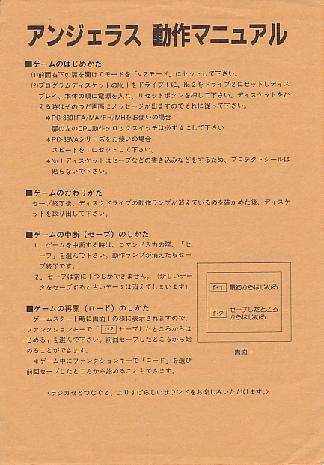 アンジェラス 動作マニュアル
■ゲームのはじめかた
(1)前面右下の扉を開けてモードを「V2モード」にセットして下さい。
(2)プログラムディスケットのNo.1をドライブ1に、No.2をドライブ2にセットしディス
プレイ、本体の順に電源を入れ、リセットボタンを押して下さい。ディスケットをか
える時はそのつど画面にメッセージがでますのでそれに従って下さい。
＊PC-8801FA/MA/FH/MHをお使いの場合
CPU動作クロックスイッチは必ず して下さい
＊PC-88VAシリーズをお使いの場合
スピードを にセットして下さい
＊No.1ディスケットはセーブなどの書き込みなどをするため、プロテクト・シールは
貼らないで下さい。
■ゲームのおわりかた
セーブ終了後、ディスクドライブの動作ランプが消えているのを確かめた後、ディスケッ
トを取り出して下さい。
■ゲームの中断（セーブ）のしかた
1．ゲームを中断する時は、コマンド入力の際、「セー
ブ」を選んで下さい。動作ランプが消えたらセー
ブ終了です。
2．セーブは常に1つしかできません。（新しいデー
タをセーブすると、古いデータは消えてしまいます）
■ゲームの再開（ロード）のしかた
ゲームスタート時に画面1の様に表示されますので、
ファンクションキーで「f・2 セーブしたところからは
じめる」を選んで下さい。前回セーブしたところから始
めることができます。
＊ゲーム中にファンクションキーで「ロード」を選び
前回セーブしたところから始めることもできます。
f・1 最初からはじめる
f・2 セーブしたところ
からはじめる
画面1